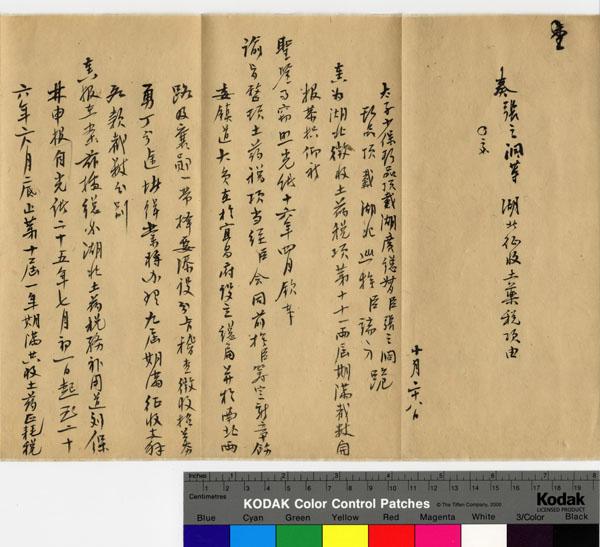 奏張之洞等 湖北征收土藥稅項由
十月廿八日
太子少保頭品頂戴湖廣總督臣張之洞跪
頭品頂戴湖北巡撫臣端方
奏為湖北徵收土药稅項第十十一兩屆期滿截數開
報恭摺仰祈
聖鑒事窃照光緒十六年四月欽奉
諭旨整頓土药稅項當經臣會同前撫臣籌定新章飭
委鎮道大員在於宜昌府設立總局并於南北两
路及襄鄖一帶擇要添設分卡稽查徵收
勇丁分途將九屆期滿征收土药
各款截數分別
奏報在案
井申报自光緒二十五年七月初一日起至二十
六年六月底止第十屆一年期滿共收土药正耗稅
Inches 1 2 3 4 5 6 7 8
Centimetres 1 2 3 4 5 6 7 8 9 10 11 12 13 14 15 16 17 18 19
KODAK Color Control Patches © The Tiffen Company, 2000 Kodak LICENSED PRODUCT
Blue Cyan Green Yellow Red Magenta White 3/Color Black